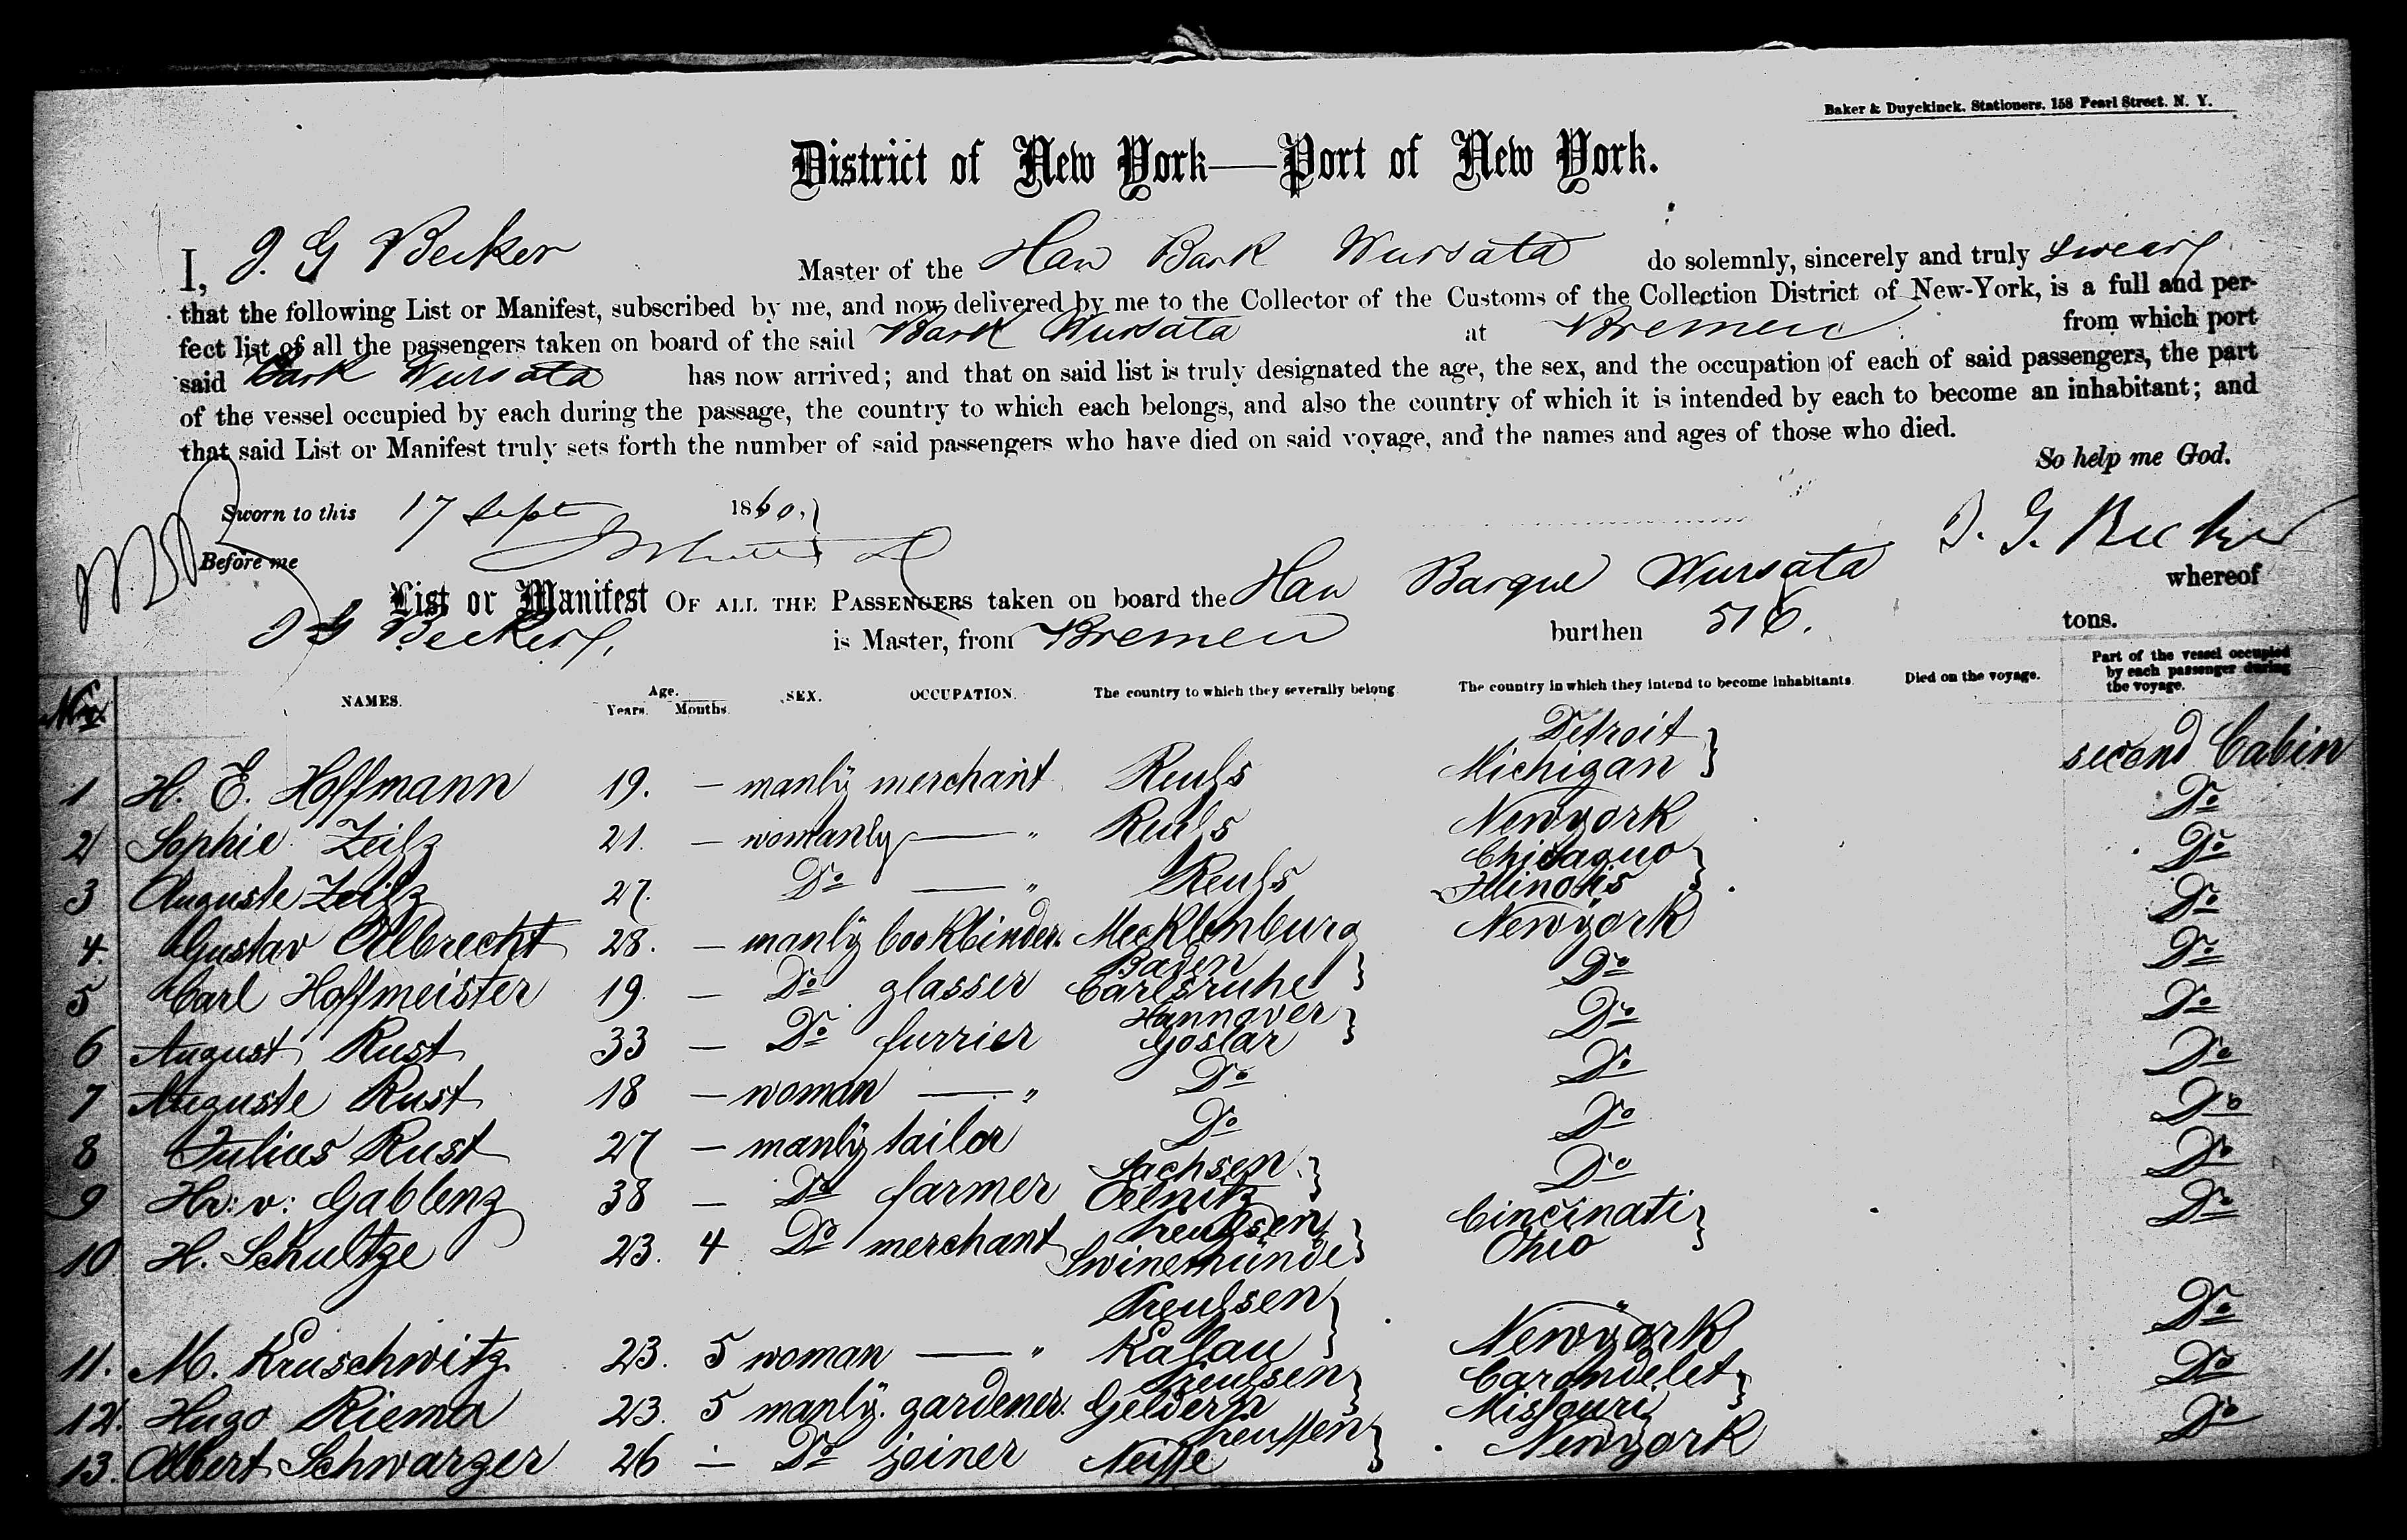 Baker & Duyckinck, Stationers, 158 Pearl Street, N. Y.
District of New York—Port of New York.
I, J. G Becker Master of the Han Bark Wursata do solemnly, sincerely and truly swear
that the following List or Manifest, subscribed by me, and now delivered by me to the Collector of the Customs of the Collection District of New-York, is a full and per-
fect list of all the passengers taken on board of the said Bark Wursata at Bremen from which port
said Bark Wursata has now arrived; and that on said list is truly designated the age, the sex, and the occupation of each of said passengers, the part
of the vessel occupied by each during the passage, the country to which each belongs, and also the country of which it is intended by each to become an inhabitant; and
that said List or Manifest truly sets forth the number of said passengers who have died on said voyage, and the names and ages of those who died.
So help me God.
Sworn to this 17 Sept 1860.
J. G. Becker
Before me
List or Manifest OF ALL THE PASSENGERS taken on board the Han Barque Wursata whereof
J G Becker is Master, from Bremen burthen 516. tons.
NAMES. Age. Years. Months. SEX. OCCUPATION. The country to which they severally belong. The country in which they intend to become inhabitants. Died on the voyage. Part of the vessel occupied by each passenger during the voyage.
1 H. E. Hoffmann 19. — manly merchant Reuß Detroit Michigan second Cabin
2 Sophie Zeiß 21. — womanly — " Reuß Newyork Do
3 Auguste Zeiß 27. Do — " Reuß Chicaguo Illinois Do
4. Gustav Albrecht 28. — manly bookbinder. Mecklenburg Newyork Do
5 Carl Hoffmeister 19. — Do glasser Baden Carlsruhe Do Do
6 August Rust 33 — Do furrier Hannover Goslar Do Do
7 Auguste Rust 18 — woman — " Do Do Do
8 Julius Rust 27 — manly tailor Do Do Do
9 Hr: v: Gablenz 38 — Do farmer Sachsen Oelnitz Do Do
10 H. Schultze 23. 4 Do merchant Preußen Swinemünde Cincinati Ohio Do
11. M. Kruschwitz 23. 5 woman — " Preußen Kalau Newyork Do
12. Hugo Riema 23. 5 manly. gardener. Preußen Geldern Carondelet Missouri Do
13. Albert Schwarzer 26 — Do joiner Preussen Neisse Newyork Do